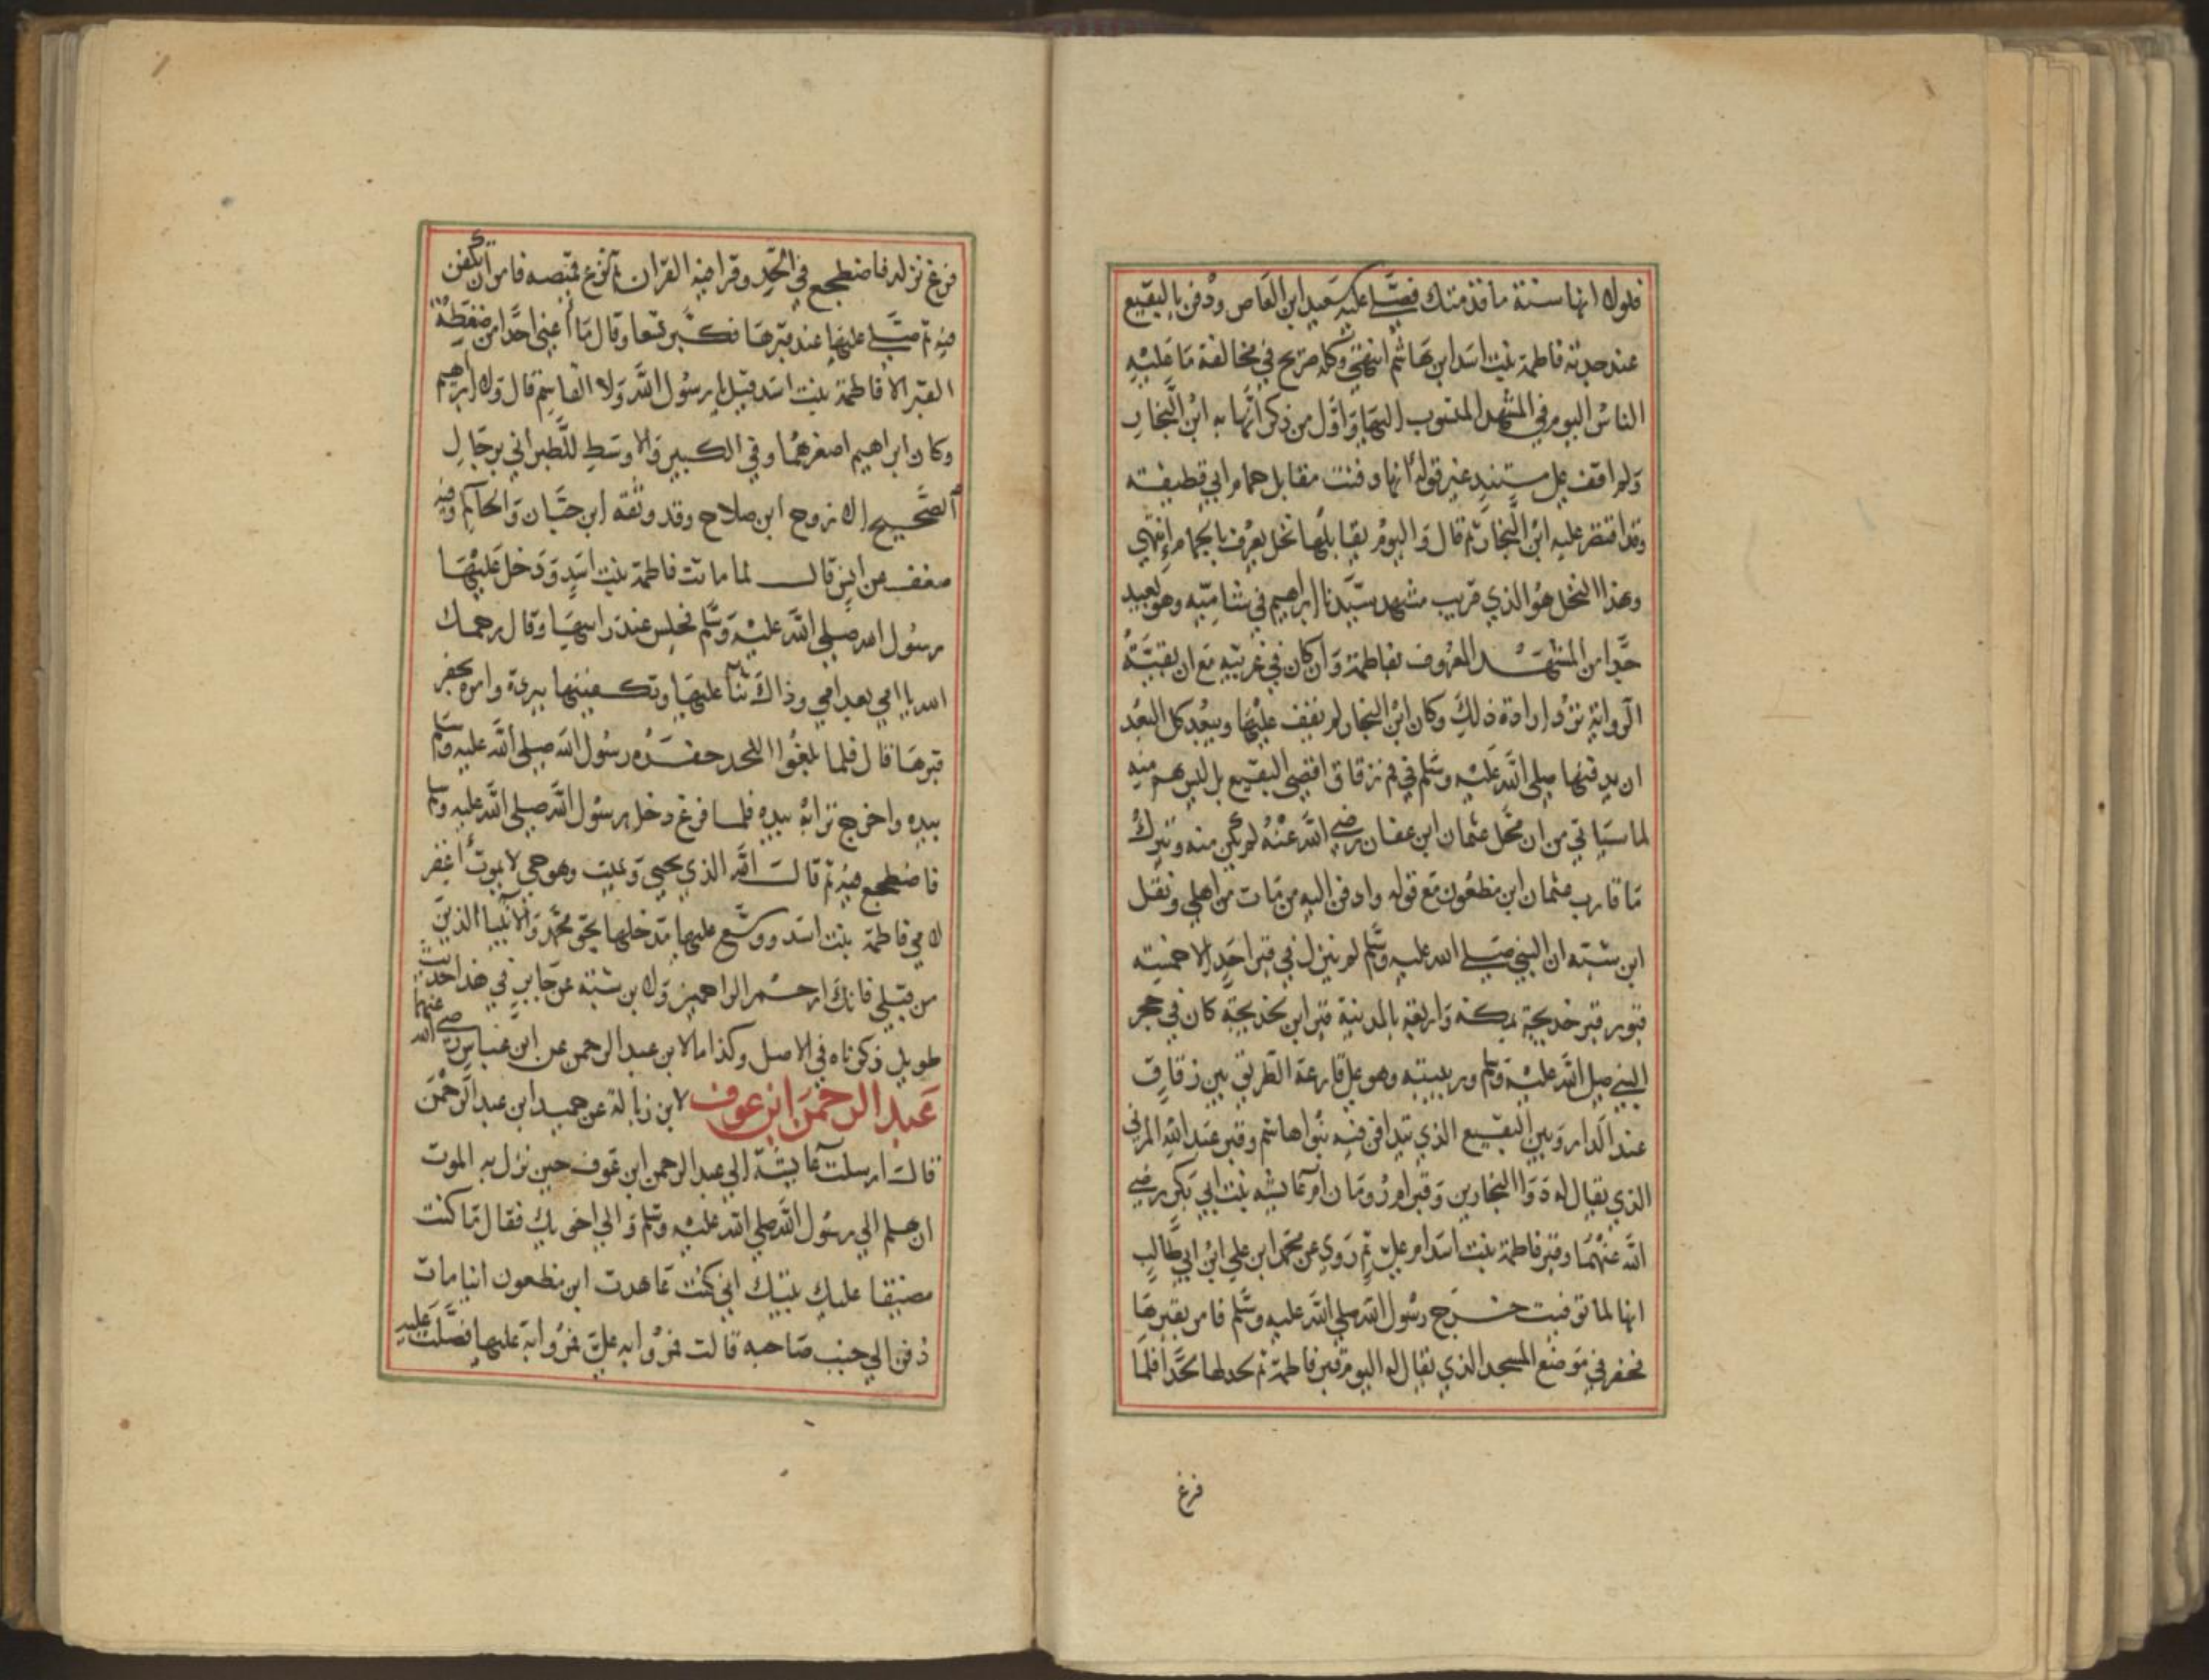 فلولا انها سنة ما قدمتك فصلي عليه سعيد ابن العاص ودفن بالبقيع
عند جدته فاطمة بنت اسد ابن هاشم انتهي وكله صريح في مخالفة ما عليه
الناس اليوم في المشهد المنسوب اليها واول من ذكر انها به ابن النجار
ولم اقف علي مستند غير قوله انها دفنت مقابل حمام ابي قطيفه
وقد اقتصر عليه ابن النجار ثم قال واليوم يقابلها نخل يعرف بالحمام انتهي
وهذا النخل هو الذي قرب مشهد سيدنا ابراهيم في شاميه وهو بعيد
جدا من المشهد المعروف بفاطمة وان كان في غربيه مع ان بقية
الرواية ترد ارادة ذلك وكان ابن النجار لم يقف عليها ويبعد كل البعد
ان يدفنها صلي الله عليه وسلم في زقاق اقصي البقيع بل ليس هم منه
لما سياتي من ان محل عثمان ابن عفان رضي الله عنه لم يكن منه ويترك
ما قارب عثمان ابن مظعون مع قوله وادفن اليه من مات من اهلي ونقل
ابن شبه ان النبي صلي الله عليه وسلم لم ينزل في قبر احد الا خمسه
قبور قبر خديجة بمكة واربعة بالمدينة قبر ابن خديجة كان في حجر
النبي صلي الله عليه وسلم وربيته وهو علي قارعة الطريق بين زقاق
عند الدار وبين البقيع الذي يتدافن فيه بنوا هاشم وقبر عبد الله المزني
الذي يقال له ذوا البجادين وقبر ام رومان ام عايشه بنت ابي بكر رضي
الله عنهما وقبر فاطمة بنت اسد ام علي ثم روي عن محمد ابن علي ابن ابي طالب
انها لما توفيت خرج رسول الله صلي الله عليه وسلم فامر بقبرها
فحفر في موضع المسجد الذي يقال له اليوم قبر فاطمة ثم لحد لها لحدا فلما
فرغ
فرغ نزل فاضطجع في اللحد وقرا فيه القران ثم نزع قميصه فامر ان تكفن
فيه ثم صلي عليها عند قبرها فكبر تسعا وقال ما اعفي احدا من ضغطة
القبر الا فاطمة بنت اسد قيل يا رسول الله ولا القاسم قال ولا ابراهيم
وكان ابراهيم اصغرهما وفي الكبير والاوسط للطبراني برجال
الصحيح الا روح ابن صلاح وقد وثقه ابن حبان والحاكم وفيه
ضعف عن انس قال لما ماتت فاطمة بنت اسد ودخل عليها
رسول الله صلي الله عليه وسلم فجلس عند راسها وقال رحمك
الله يا امي بعد امي وذاك ثنا عليها وتكفينها ببردة وامره بحفر
قبرها قال فلما بلغوا اللحد حفره رسول الله صلي الله عليه وسلم
بيده واخرج ترابه بيده فلما فرغ دخل رسول الله صلي الله عليه وسلم
فاضطجع فيه ثم قالت الله الذي يحيي ويميت وهو حي لا يموت اغفر
لامي فاطمة بنت اسد ووسع عليها مدخلها بحق محمد والانبيا الذين
من قبلي فانك ارحم الراحمين ولابن شبة عن جابر في هذا حديث
طويل ذكرناه في الاصل وكذا ما لابن عبد الرحمن عن ابن عباس رضي الله عنهما
عبد الرحمن ابن عوف لابن زبالة عن حميد ابن عبد الرحمن
قالت ارسلت عايشة الي عبد الرحمن ابن عوف حين نزل به الموت
ان هلم الي رسول الله صلي الله عليه وسلم والي اخويك فقال ما كنت
مضيقا عليك بيتك اني كنت عاهدت ابن مظعون اينا مات
دفن الي جنب صاحبه قالت فمروا به علي فمروا به عليها فصلت عليه